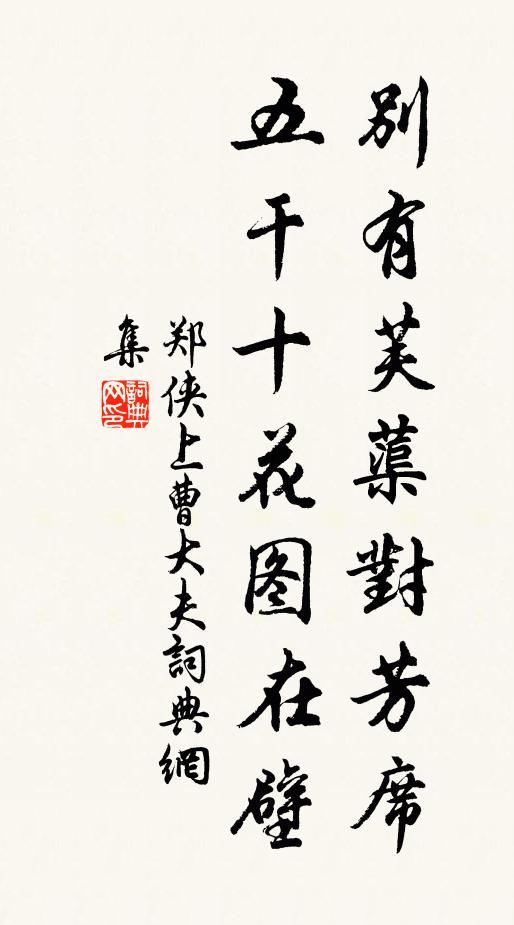 別有芙蕖對芳席
五干十花图在壁
郑侠上曹大夫詞典網
集
詞典
网印